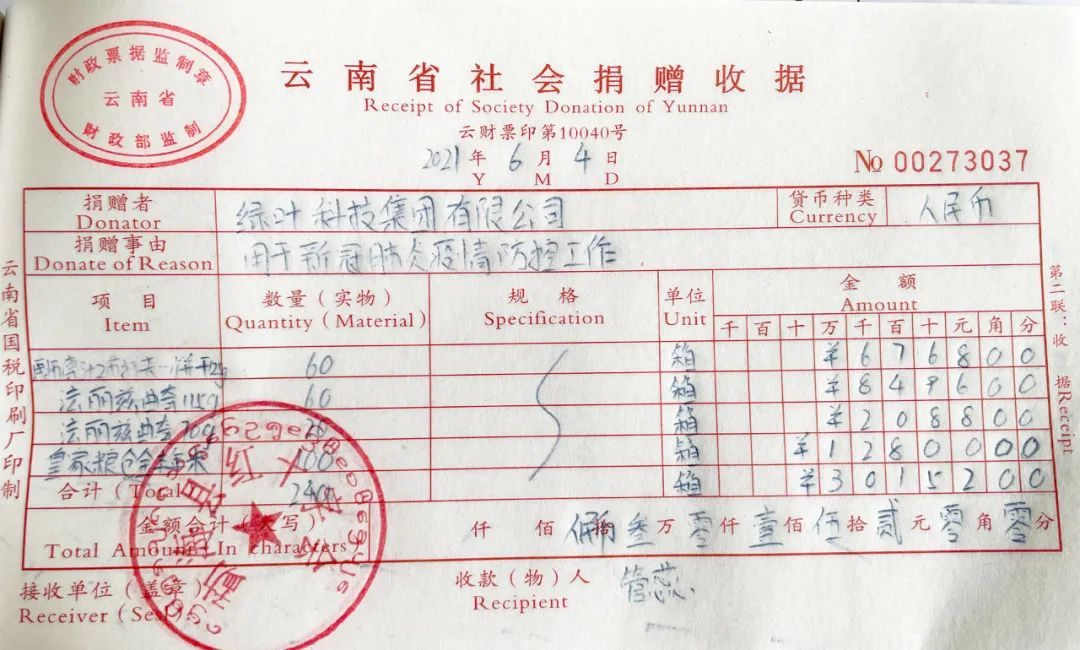 财政票据监制章
云南省
财政部监制
云南省社会捐赠收据
Receipt of Society Donation of Yunnan
云财票印第10040号
2021年6月4日
Y M D
№ 00273037
捐赠者 绿叶科技集团有限公司 货币种类 人民币
Donator Currency
捐赠事由 用于新冠肺炎疫情防控工作
Donate of Reason
项目 数量(实物) 规格 单位 金额
Item Quantity(Material) Specification Unit Amount
千 百 十 万 千 百 十 元 角 分
60 箱 ¥ 6 7 6 8 0 0
法丽兹曲奇115g 60 箱 ¥ 8 4 9 6 0 0
法丽兹曲奇70g 箱 ¥ 2 0 8 8 0 0
皇家粮仓 100 箱 ¥ 1 2 8 0 0 0 0
合计(Total 240 箱 ¥ 3 0 1 5 2 0 0
金额合计(大写) 仟 佰 叁万零仟壹佰伍拾贰元零角零分
Total Amount(In characters)
接收单位(盖章) 收款(物)人 管蕊
Receiver(Seal) Recipient
云南省国税印刷厂印制
第二联:收据Receipt
红十字会